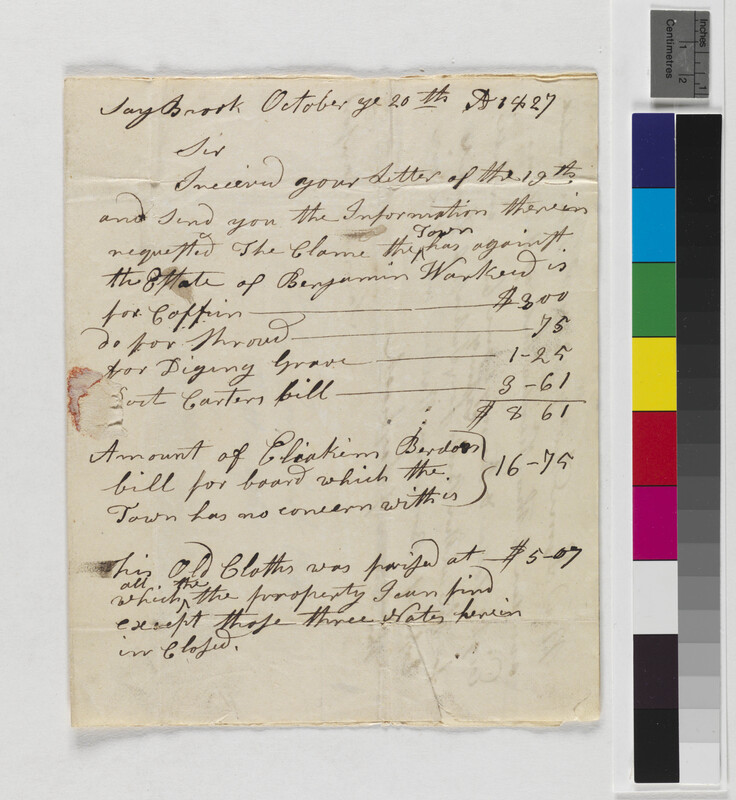 Say Brook October ye 20th AD 1827
Sir
I recieved your Letter of the 19th
and Send you the Information therein
requested The Clame the Town has against
the Estate of Benjamin is
for Coffin $3 00
do for Shroud 75
for Diging Grave 1-25
Doct Carters bill 3-61
$ 8 61
Amount of Eliakim
bill for board which the 16-75
Town has no concern with is
his Old Cloths was prised at $5-07
which all the the property I can find
except those three Notes herein
in Closed.
Inches
Centimetres
1
2
1